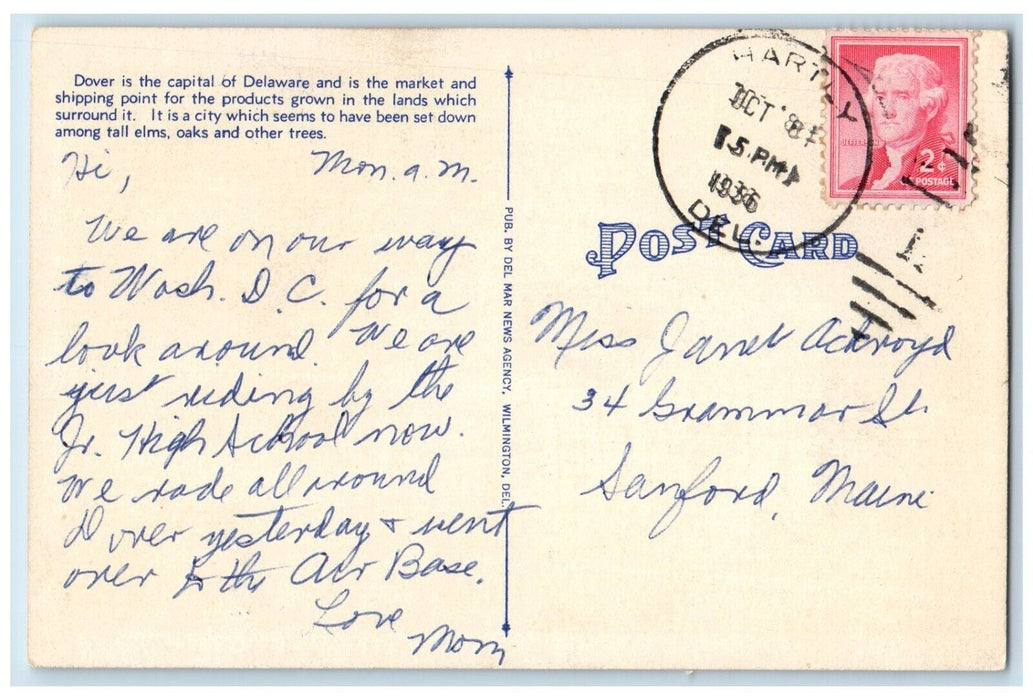 Dover is the capital of Delaware and is the market and
shipping point for the products grown in the lands which
surround it. It is a city which seems to have been set down
among tall elms, oaks and other trees.
Hi, Mon. a.m.
We are on our way
to Wash. D. C. for a
look around. We are
just riding by the
Jr. High School now.
We rode all around
Dover yesterday & went
over to the Air Base.
Love
Mom
PUB. BY DEL MAR NEWS AGENCY, WILMINGTON, DEL.
HARTLY
OCT 8
5 PM
1956
DEL.
JEFFERSON
2¢
U.S. POSTAGE
POST CARD
Miss Janet Ackroyd
34 Grammar St.
Sanford, Maine